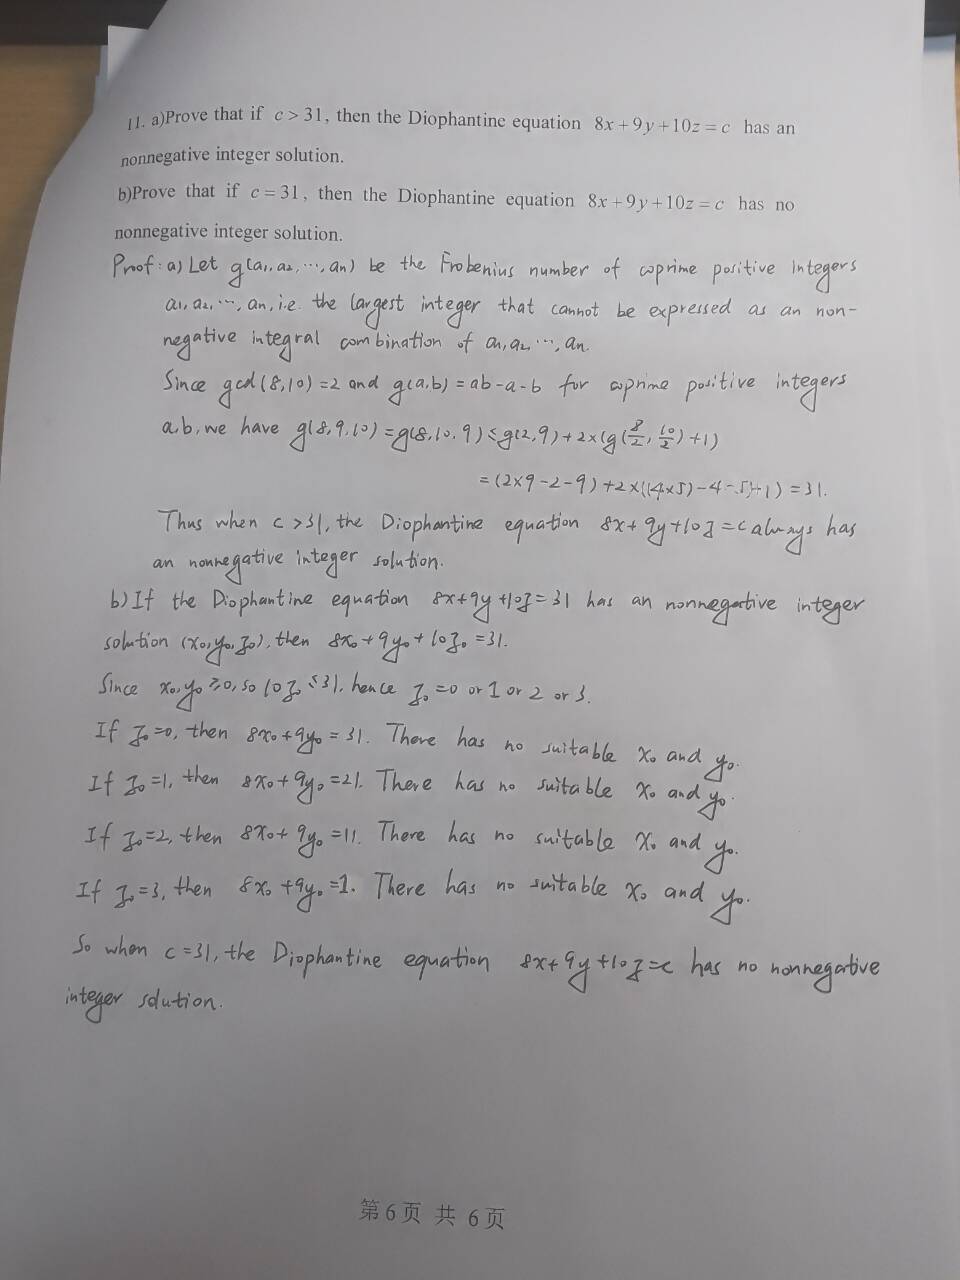 11. a)Prove that if c > 31, then the Diophantine equation 8x+9y+10z=c has an
nonnegative integer solution.
b)Prove that if c = 31, then the Diophantine equation 8x+9y+10z=c has no
nonnegative integer solution.
Proof: a) Let g(a₁,a₂,…,an) be the Frobenius number of coprime positive integers
a₁, a₂, …, an, i.e. the largest integer that cannot be expressed as an non-
negative integral combination of a₁, a₂, …, an.
Since gcd(8,10)=2 and g(a,b) = ab-a-b for coprime positive integers
a,b, we have g(8,9,10) = g(8,10,9) ≤ g(2,9) + 2×(g(8/2, 10/2)+1)
= (2×9-2-9)+2×((4×5)-4-5+1) = 31.
Thus when c >31, the Diophantine equation 8x+9y+10z=c always has
an nonnegative integer solution.
b) If the Diophantine equation 8x+9y+10z=31 has an nonnegative integer
solution (x₀,y₀,z₀), then 8x₀+9y₀+10z₀=31.
Since x₀,y₀ ≥0, so 10z₀ ≤31, hence z₀=0 or 1 or 2 or 3.
If z₀=0, then 8x₀+9y₀=31. There has no suitable x₀ and y₀.
If z₀=1, then 8x₀+9y₀=21. There has no suitable x₀ and y₀.
If z₀=2, then 8x₀+9y₀=11. There has no suitable x₀ and y₀.
If z₀=3, then 8x₀+9y₀=1. There has no suitable x₀ and y₀.
So when c=31, the Diophantine equation 8x+9y+10z=c has no nonnegative
integer solution.
第6页 共 6页